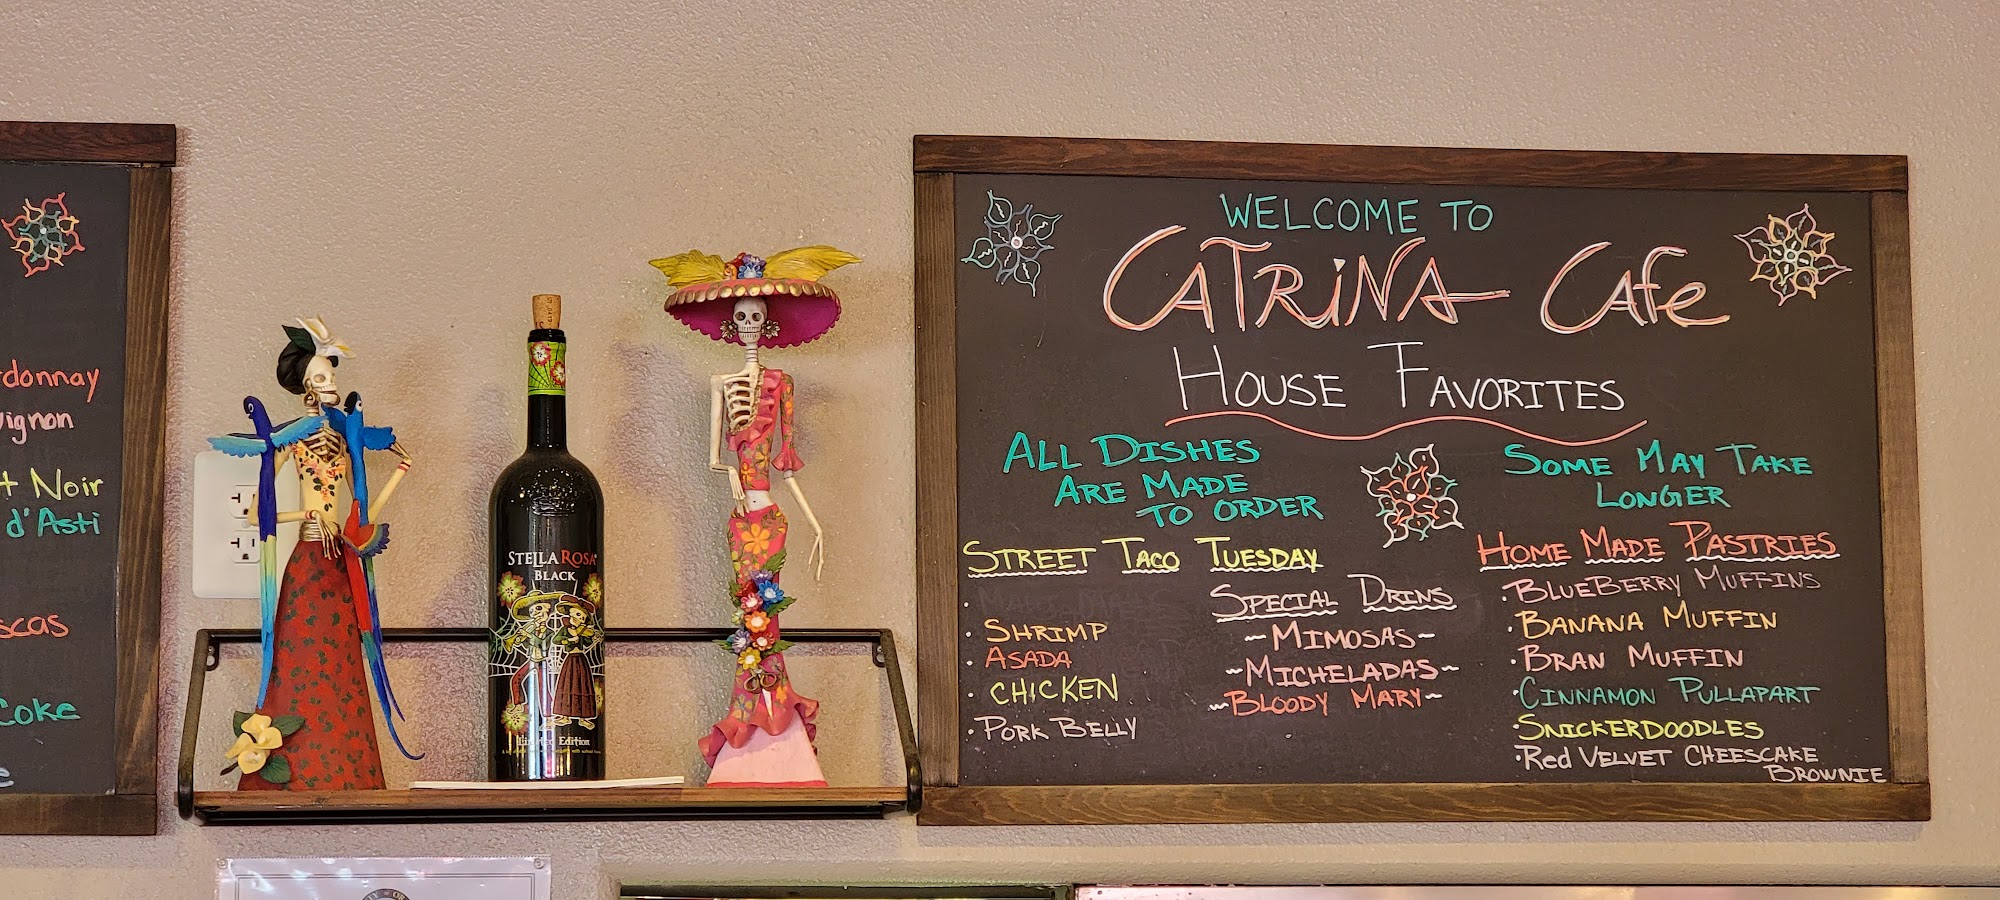 donnay
vignon
t Noir
d'Asti
scas
Coke
STELLA ROSA
BLACK
Limited Edition
WELCOME TO
CATRINA CAFE
HOUSE FAVORITES
ALL DISHES
ARE MADE
TO ORDER
SOME MAY TAKE
LONGER
STREET TACO TUESDAY
· SHRIMP
· ASADA
· CHICKEN
· PORK BELLY
SPECIAL DRINS
~MIMOSAS~
~MICHELADAS~
~BLOODY MARY~
HOME MADE PASTRIES
·BLUEBERRY MUFFINS
·BANANA MUFFIN
·BRAN MUFFIN
·CINNAMON PULLAPART
·SNICKERDOODLES
·Red VELVET CHEESCAKE
BROWNIE